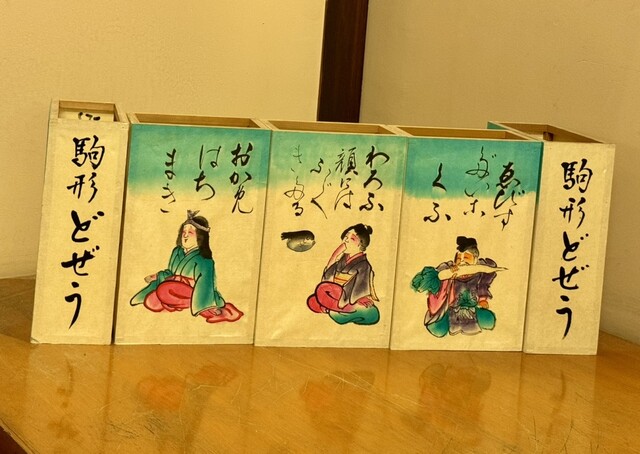 駒形どぜう
ゑびす
だいこ
くふ
わらふ
顔には
ふぐ
きたる
おかめ
はち
まき
駒形どぜう